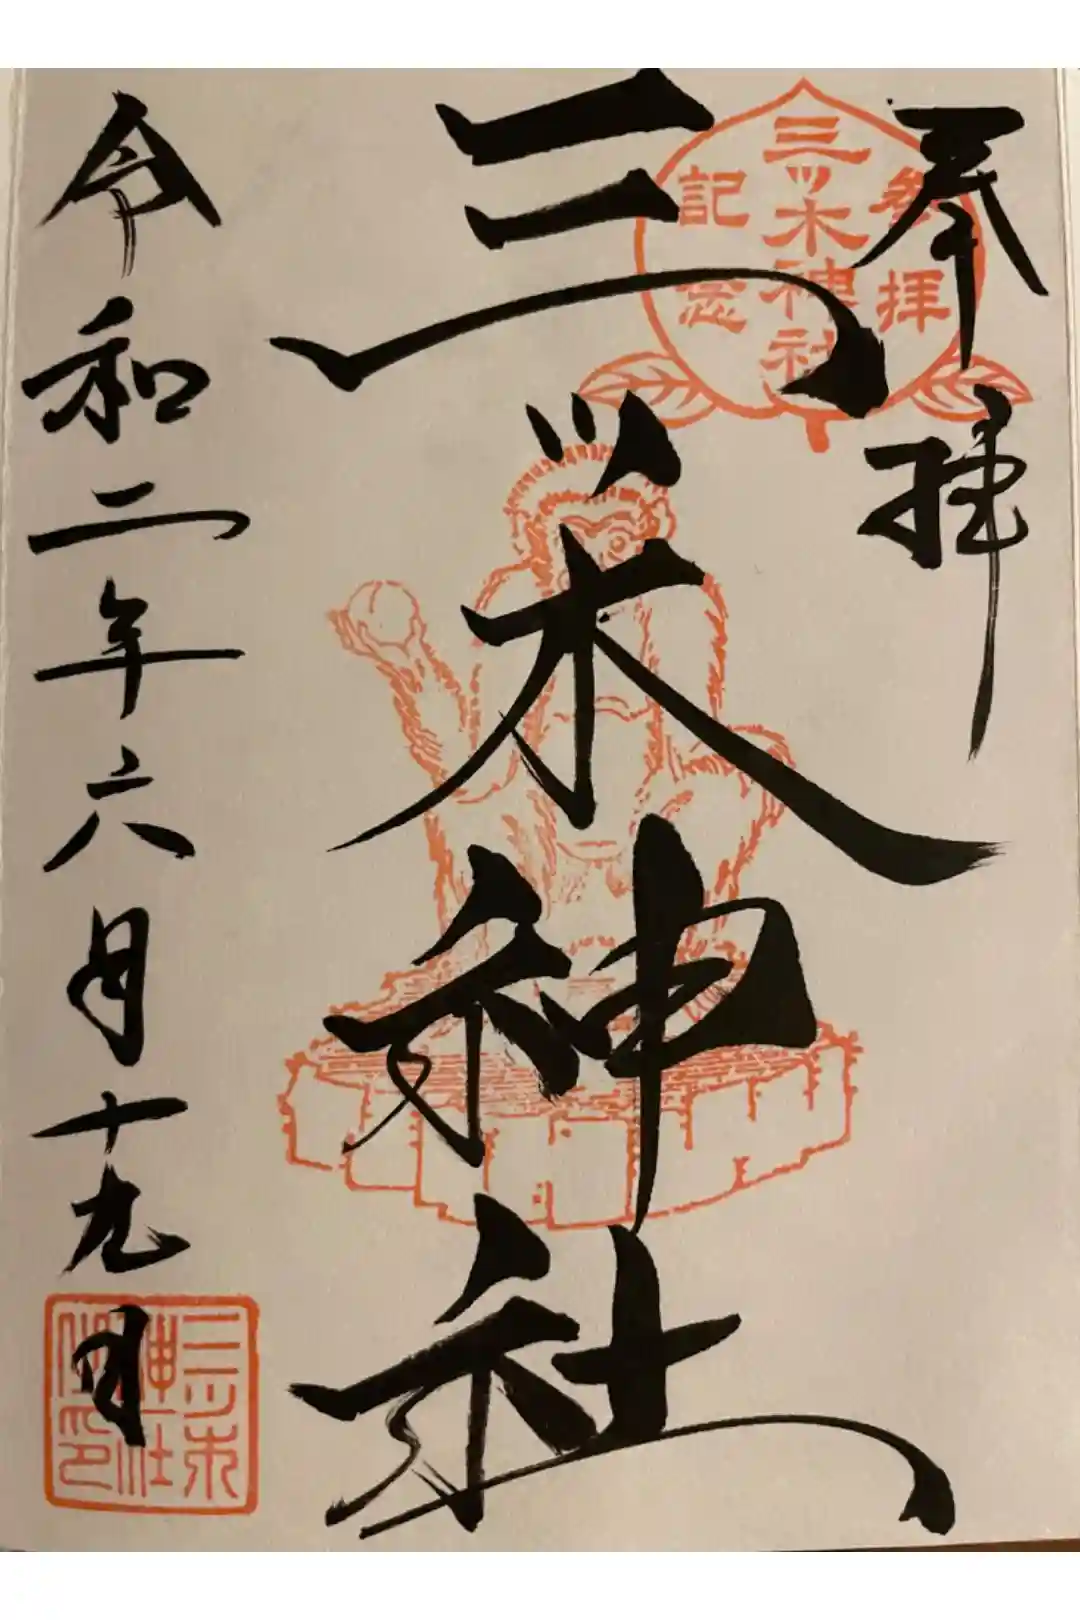 奉拝
参拝
三ッ木神社
記念
三ッ木神社
令和二年六月十九日
三ツ木
神社